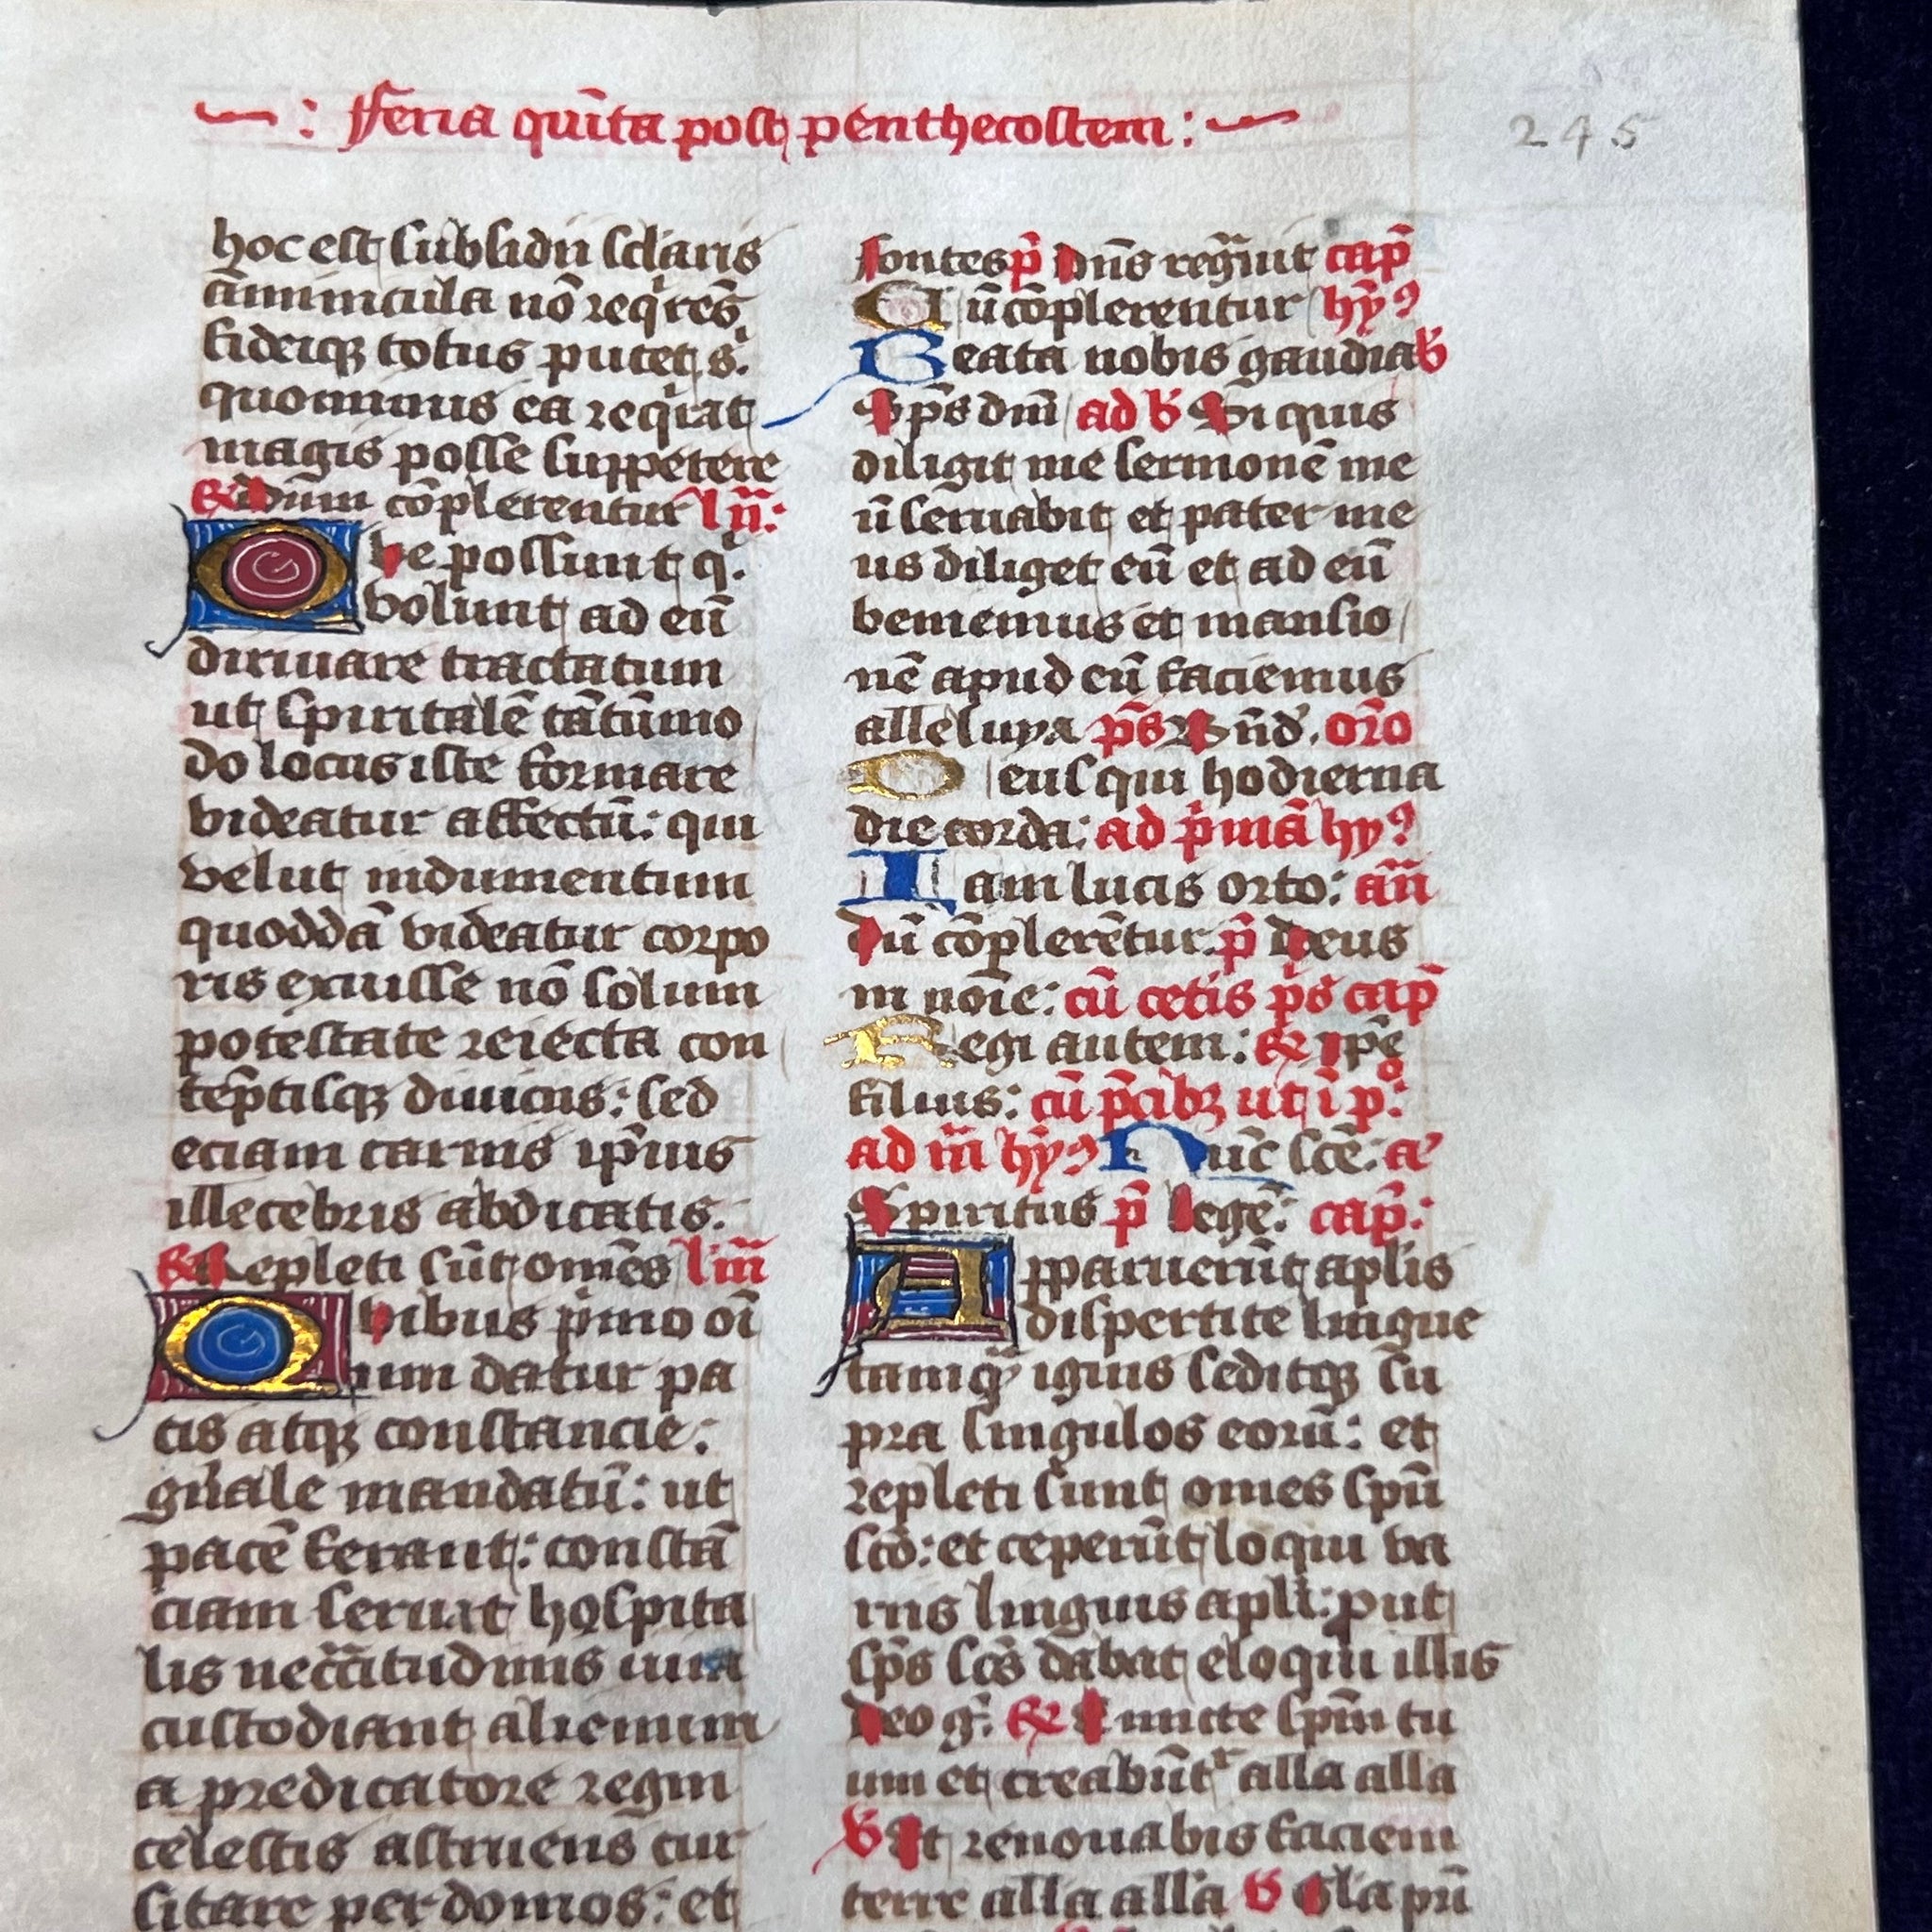 Feria quīta post penthecostem
245
hoc est subsidii sclaris
āminicula nō req̇rēs
fideiqꝫ totus putet s.
quominus ea req̇rat
magis posse suppetere
℟ dum cōplerentur l͞ı͞ı:
Que possunt q.
volunt ad eū
diriuare tractatum
ut spiritalē tātūmo
do locus iste formare
videatur affectū: qui
velut indumentum
quoddā videatur corpo
ris exuisse nō solum
potestate reiecta con
tēptisqꝫ diuiciis: sed
eciam carnis ip̄ius
illecebris abdicatis.
℟ Repleti sūt omēs l͞ı͞ı͞ı
Quibus p̍mo oī
um datur pa
cis atqꝫ constancie:
gn̄ale mandatū: ut
pacē ferant: constā
ciam seruāt hospita
lis neccītudinis iura
custodiant alienum
a predicatore regni
celestis astruens cur
sitare per domos: et
fontes p̄ Dn̄s regͣuit cap̄
Cū cōplerentur hȳꝰ
Beata nobis gaudia v̄
Sp̄s dn̄i ad b̄ Si quis
diligit me sermonē me
ū seruabit et pater me
us diliget eū et ad eū
veniemus et mansio
nē apud eū faciemus
alleluya p̄s Bn̄d. or̄o
Deus qui hodierna
die corda: ad p̍mā hyꝰ
Iam lucis orto: an̄
Dū cōplerētur p̄ Deus
in noīe: cū cetis p̄s cap̄
Regi autem: ℟ ip̄e
filius: cū p̄cibꝫ ut ī pͦ:
ad m̄ hȳꝰ Nūc scē: aͬ
Spiritus p̄ legē: cap̄:
Apparuerūt aplis
dispertite lingue
tamqͣ ignis seditqꝫ su
pra singulos eorū: et
repleti sunt omēs spū
scō: et ceperūt loqui va
riis linguis apli: put
sp̄s scs̄ dabat eloqui illis
Deo g. ℟ Emitte spm̄ tu
um et creabūtᷣ alla alla
℣ Et renouabis faciem
terre alla alla ℣ Gla pr̄i